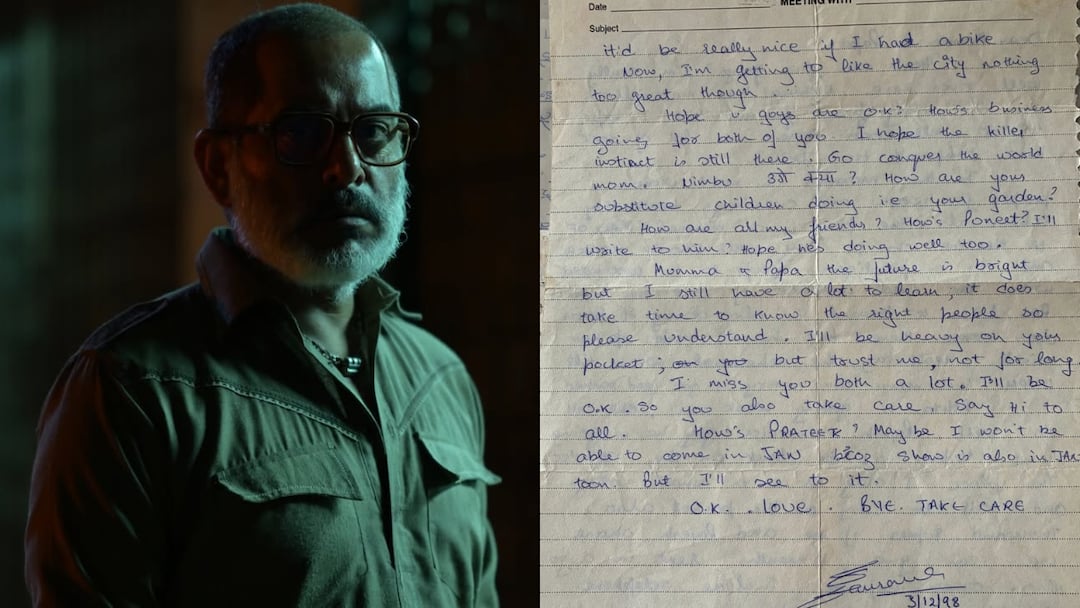 MEETING WITH
Date
Subject
it'd be really nice if I had a bike
Now, I'm getting to like the city nothing
too great though.
Hope u guys are O.K? How's business
going for both of you. I hope the killer
instinct is still there. Go conquer the world
mom. Nimbu उगे क्या ? How are your
substitute children doing i.e your garden?
How are all my friends? How's Poneet? I'll
write to him? Hope he's doing well too.
Momma & Papa the future is bright
but I still have a lot to learn, it does
take time to know the right people so
please understand. I'll be heavy on your
pocket; on you but trust me, not for long
I miss you both a lot. I'll be
O.K. So you also take care. Say Hi to
all. How's PRATEEK? May be I won't be
able to come in JAN b'coz show is also in JAN
toon. But I'll see to it.
O.K. . Love. BYE. TAKE CARE
Saurave
3/12/98